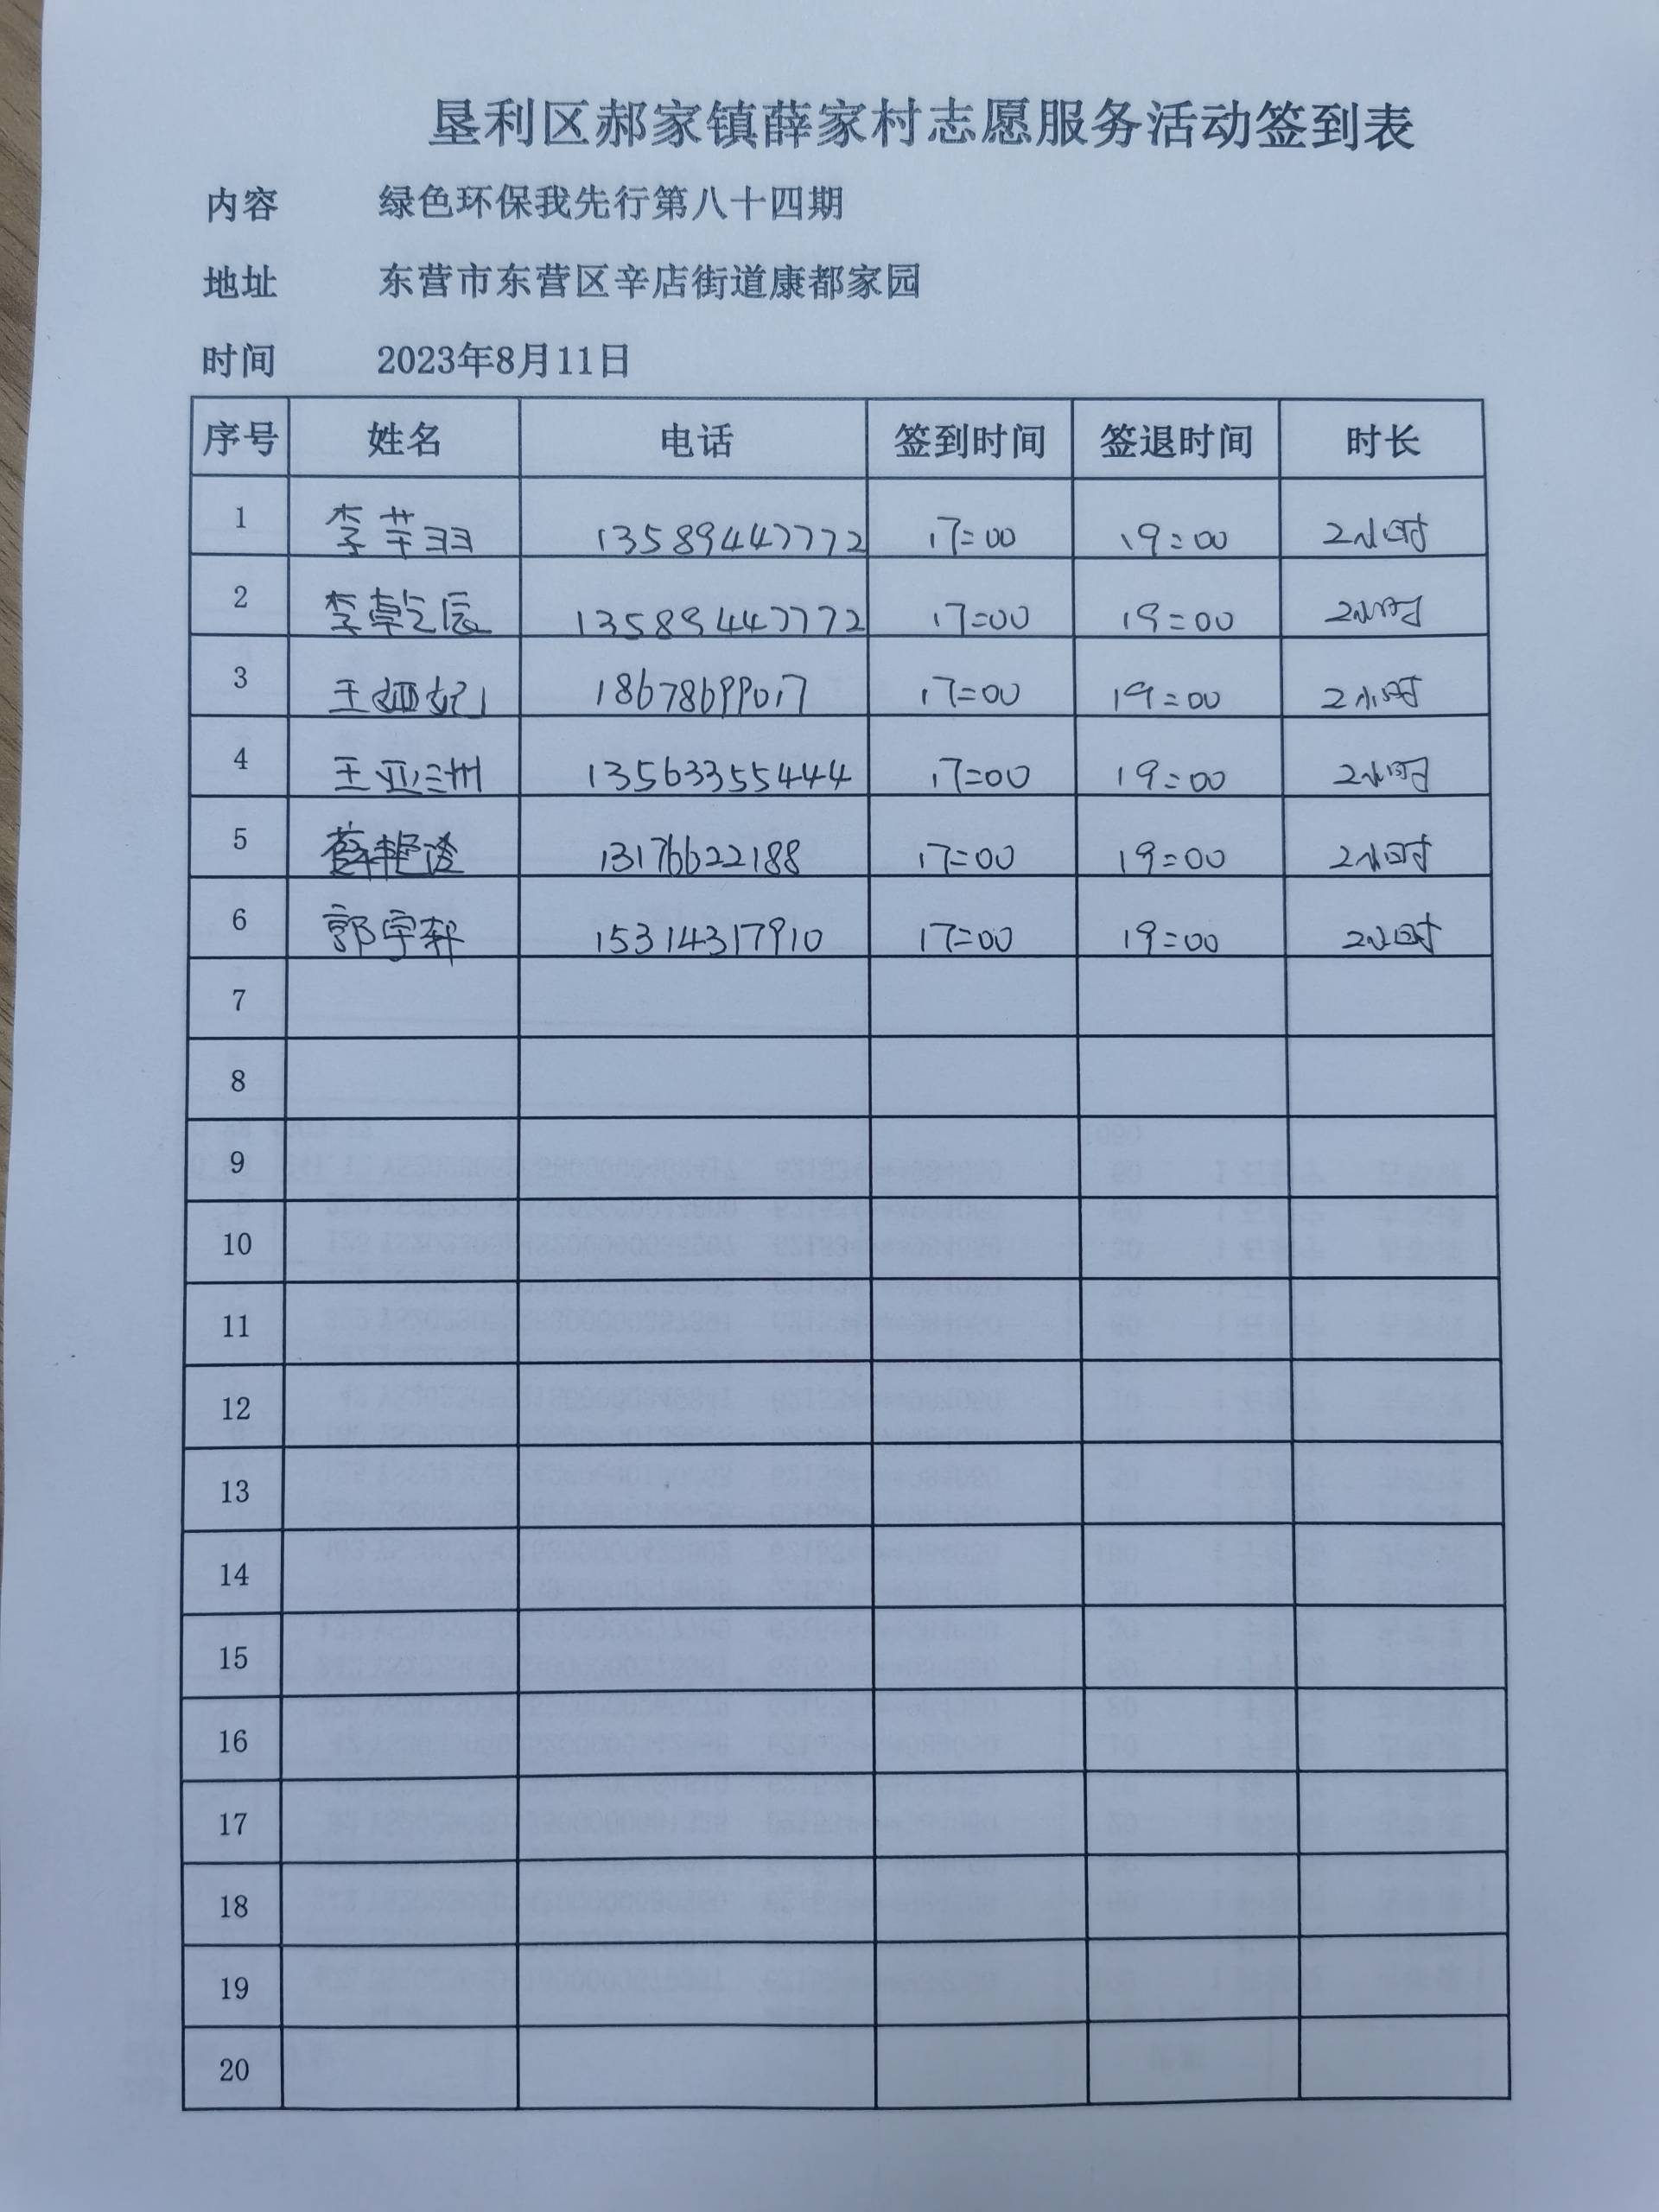 垦利区郝家镇薛家村志愿服务活动签到表
内容 绿色环保我先行第八十四期
地址 东营市东营区辛店街道康都家园
时间 2023年8月11日
序号 姓名 电话 签到时间 签退时间 时长
1 李芊羽 13589447772 17:00 19:00 2小时
2 李乾辰 13589447772 17:00 19:00 2小时
3 王娅妃 18678699017 17:00 19:00 2小时
4 王亚洲 13563355444 17:00 19:00 2小时
5 13176622188 17:00 19:00 2小时
6 郭宇轩 15314317910 17:00 19:00 2小时
7
8
9
10
11
12
13
14
15
16
17
18
19
20